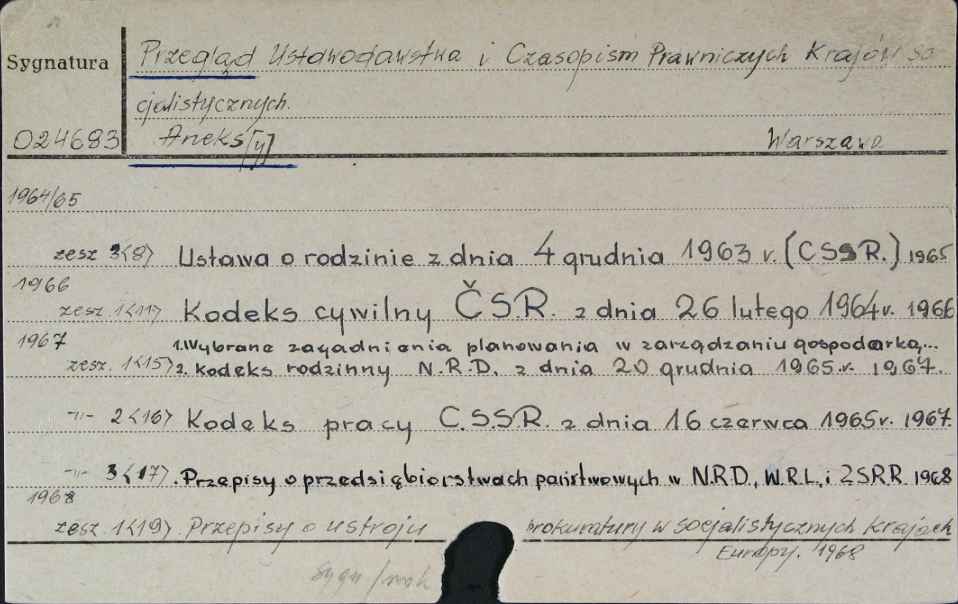 Sygnatura
Przegląd Ustawodawstwa i Czasopism Prawniczych Krajów so
cjalistycznych.
024683 Aneks[y] Warszawa
1964/65
zesz 3<8> Ustawa o rodzinie z dnia 4 grudnia 1963 r. (CSSR.) 1965
1966
zesz. 1<11> Kodeks cywilny ČSR. z dnia 26 lutego 1964r. 1966
1967 1.Wybrane zagadnienia planowania w zarządzaniu gospodarką,..
zesz. 1<15> 2. Kodeks rodzinny N.R.D. z dnia 20 grudnia 1965.r. 1967.
-"- 2<16> Kodeks pracy C.S.S.R. z dnia 16 czerwca 1965r. 1967.
-"- 3<17>. Przepisy o przedsiębiorstwach państwowych w N.R.D., W.R.L, i ZSRR 1968
1968
zesz. 1<19> Przepisy o ustroju prokuratury w socjalistycznych krajach
Europy. 1968